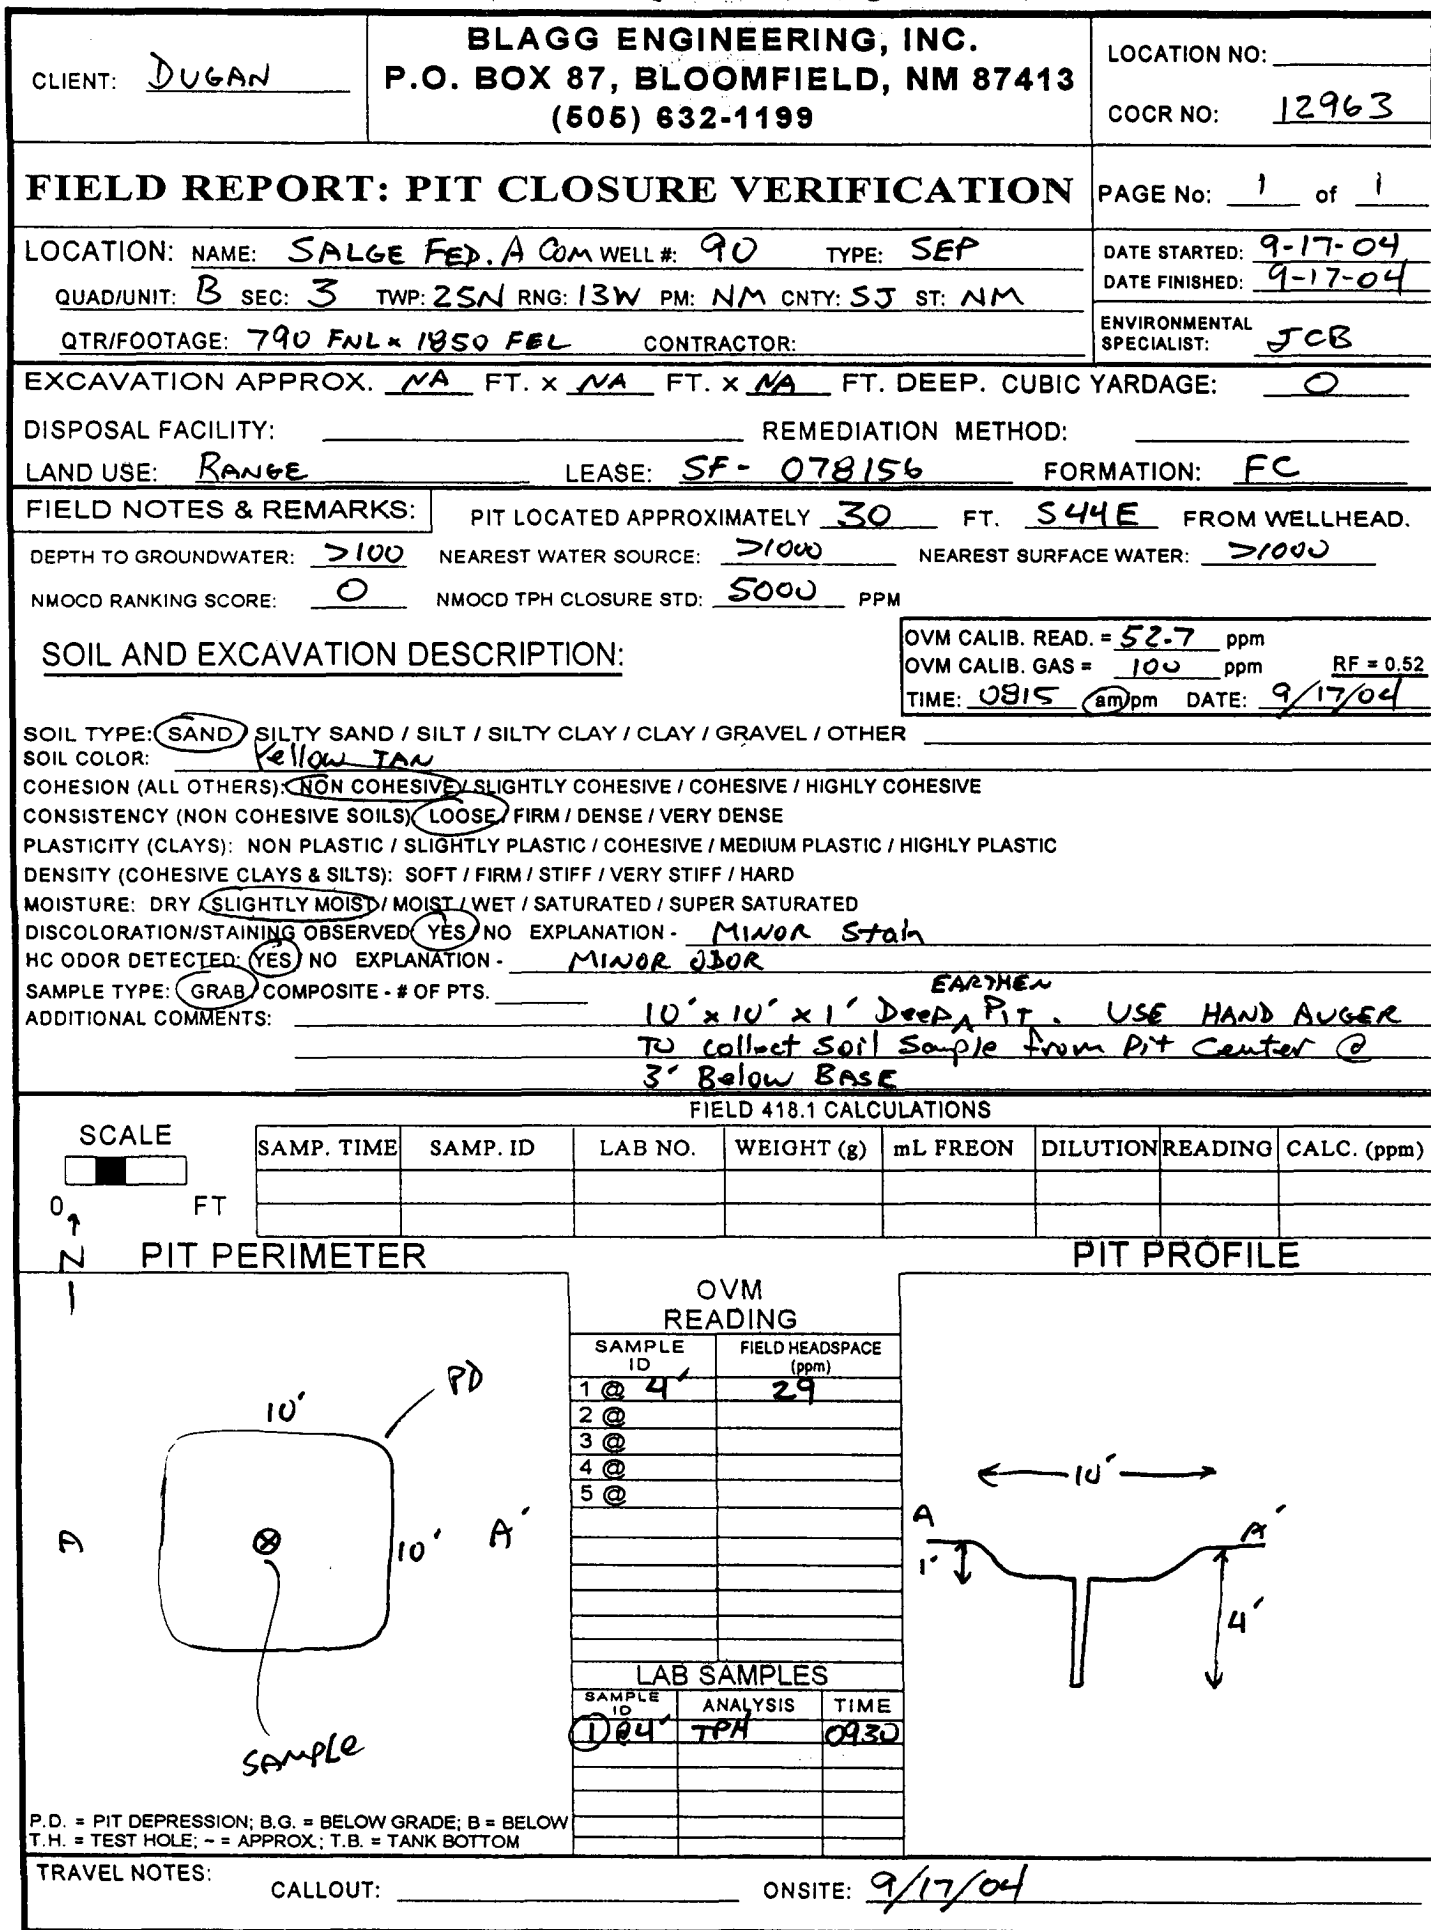 CLIENT: DUGAN
BLAGG ENGINEERING, INC.
P.O. BOX 87, BLOOMFIELD, NM 87413
(505) 632-1199
LOCATION NO:
COCR NO: 12963
FIELD REPORT: PIT CLOSURE VERIFICATION
PAGE No: 1 of 1
LOCATION: NAME: SALGE FED. A COM WELL #: 90 TYPE: SEP
QUAD/UNIT: B SEC: 3 TWP: 25N RNG: 13W PM: NM CNTY: SJ ST: NM
QTR/FOOTAGE: 790 FNL x 1850 FEL CONTRACTOR:
DATE STARTED: 9-17-04
DATE FINISHED: 9-17-04
ENVIRONMENTAL
SPECIALIST: JCB
EXCAVATION APPROX. NA FT. x NA FT. x NA FT. DEEP. CUBIC YARDAGE: 0
DISPOSAL FACILITY: REMEDIATION METHOD:
LAND USE: RANGE LEASE: SF- 078156 FORMATION: FC
FIELD NOTES & REMARKS: PIT LOCATED APPROXIMATELY 30 FT. S44E FROM WELLHEAD.
DEPTH TO GROUNDWATER: >100 NEAREST WATER SOURCE: >1000 NEAREST SURFACE WATER: >1000
NMOCD RANKING SCORE: 0 NMOCD TPH CLOSURE STD: 5000 PPM
SOIL AND EXCAVATION DESCRIPTION:
OVM CALIB. READ. = 52.7 ppm
OVM CALIB. GAS = 100 ppm RF = 0.52
TIME: 0815 am/pm DATE: 9/17/04
SOIL TYPE: SAND / SILTY SAND / SILT / SILTY CLAY / CLAY / GRAVEL / OTHER
SOIL COLOR: Yellow TAN
COHESION (ALL OTHERS): NON COHESIVE / SLIGHTLY COHESIVE / COHESIVE / HIGHLY COHESIVE
CONSISTENCY (NON COHESIVE SOILS): LOOSE / FIRM / DENSE / VERY DENSE
PLASTICITY (CLAYS): NON PLASTIC / SLIGHTLY PLASTIC / COHESIVE / MEDIUM PLASTIC / HIGHLY PLASTIC
DENSITY (COHESIVE CLAYS & SILTS): SOFT / FIRM / STIFF / VERY STIFF / HARD
MOISTURE: DRY / SLIGHTLY MOIST / MOIST / WET / SATURATED / SUPER SATURATED
DISCOLORATION/STAINING OBSERVED: YES / NO EXPLANATION - MINOR Stain
HC ODOR DETECTED: YES / NO EXPLANATION - MINOR ODOR
SAMPLE TYPE: GRAB / COMPOSITE - # OF PTS.
EARTHEN
ADDITIONAL COMMENTS: 10' x 10' x 1' Deep ^ PIT. USE HAND AUGER
TO collect Soil Sample from Pit Center @
3' Below BASE
FIELD 418.1 CALCULATIONS
SCALE
0 FT
SAMP. TIME SAMP. ID LAB NO. WEIGHT (g) mL FREON DILUTION READING CALC. (ppm)
N
PIT PERIMETER
PIT PROFILE
OVM
READING
SAMPLE ID FIELD HEADSPACE (ppm)
1 @ 4' 29
2 @
3 @
4 @
5 @
PD
10'
10'
A
A'
SAMPLE
10'
A
A'
1'
4'
LAB SAMPLES
SAMPLE ID ANALYSIS TIME
1 @4' TPH 0930
P.D. = PIT DEPRESSION; B.G. = BELOW GRADE; B = BELOW
T.H. = TEST HOLE; ~ = APPROX.; T.B. = TANK BOTTOM
TRAVEL NOTES: CALLOUT: ONSITE: 9/17/04